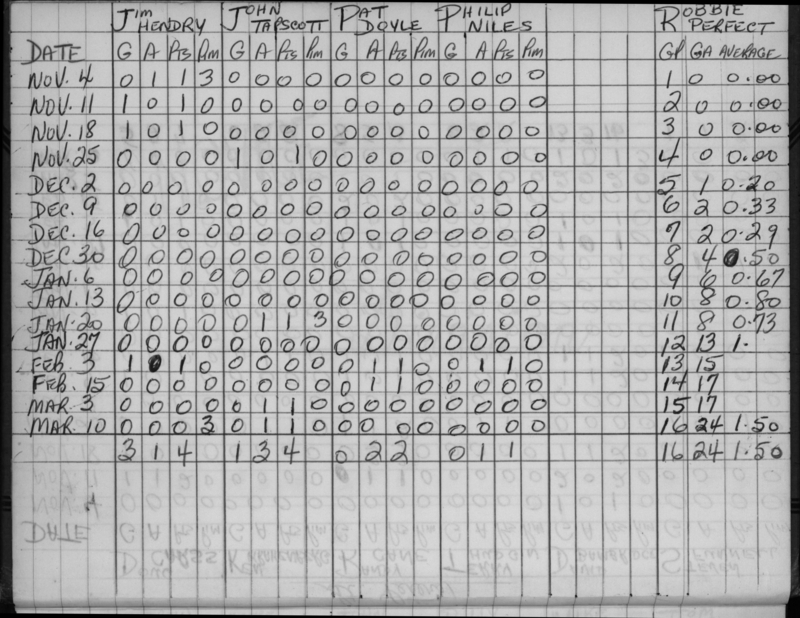 JIM HENDRY JOHN TAPSCOTT PAT DOYLE PHILIP NILES ROBBIE PERFECT
DATE G A Pts Pim G A Pts Pim G A Pts Pim G A Pts Pim GP GA AVERAGE
NOV. 4 0 1 1 3 0 0 0 0 0 0 0 0 0 0 0 0 1 0 0.00
NOV. 11 1 0 1 0 0 0 0 0 0 0 0 0 0 0 0 0 2 0 0.00
NOV. 18 1 0 1 0 0 0 0 0 0 0 0 0 0 0 0 0 3 0 0.00
NOV. 25 0 0 0 0 1 0 1 0 0 0 0 0 0 0 0 0 4 0 0.00
DEC. 2 0 0 0 0 0 0 0 0 0 0 0 0 0 0 0 0 5 1 0.20
DEC. 9 0 0 0 0 0 0 0 0 0 0 0 0 0 0 0 0 6 2 0.33
DEC. 16 0 0 0 0 0 0 0 0 0 0 0 0 0 0 0 0 7 2 0.29
DEC. 30 0 0 0 0 0 0 0 0 0 0 0 0 0 0 0 0 8 4 0.50
JAN. 6 0 0 0 0 0 0 0 0 0 0 0 0 0 0 0 0 9 6 0.67
JAN. 13 0 0 0 0 0 0 0 0 0 0 0 0 0 0 0 0 10 8 0.80
JAN. 20 0 0 0 0 0 1 1 3 0 0 0 0 0 0 0 0 11 8 0.73
JAN. 27 0 0 0 0 0 0 0 0 0 0 0 0 0 0 0 0 12 13 1.
FEB. 3 1 0 1 0 0 0 0 0 0 1 1 0 0 1 1 0 13 15
FEB. 15 0 0 0 0 0 0 0 0 0 1 1 0 0 0 0 0 14 17
MAR. 3 0 0 0 0 0 1 1 0 0 0 0 0 0 0 0 0 15 17
MAR. 10 0 0 0 3 0 1 1 0 0 0 0 0 0 0 0 0 16 24 1.50
3 1 4 1 3 4 0 2 2 0 1 1 16 24 1.50